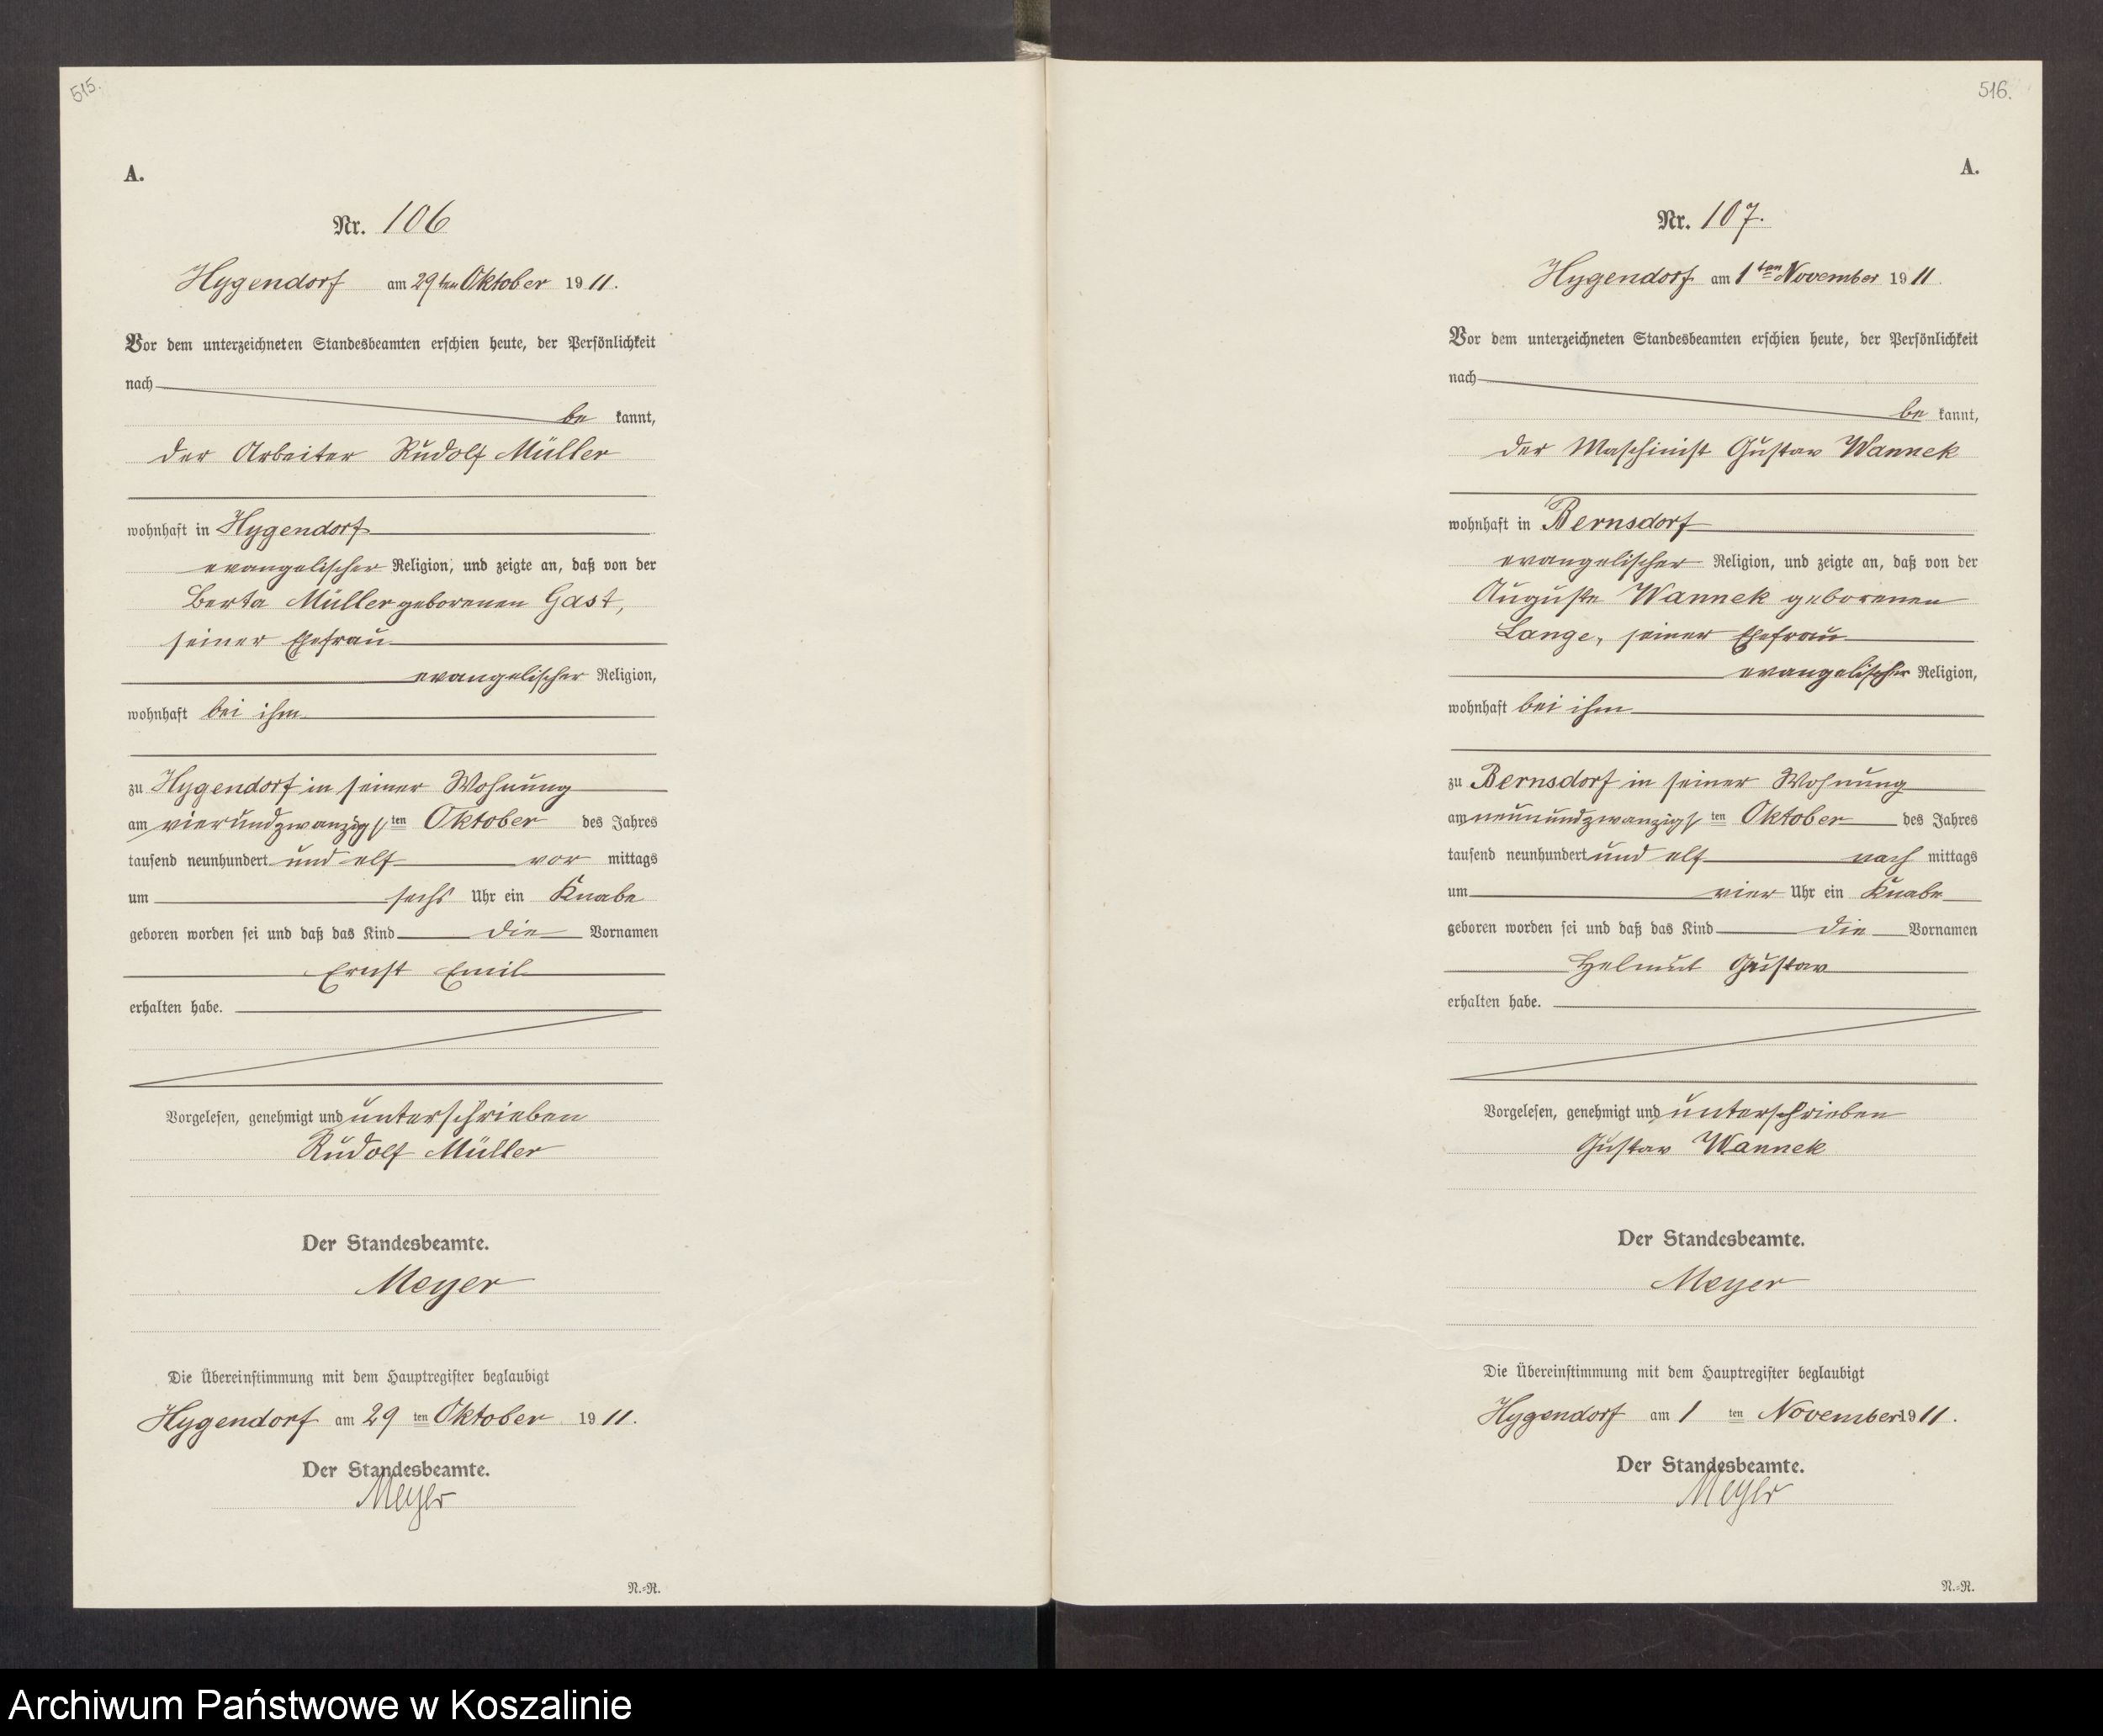 515.
A.
Nr. 106
Hygendorf am 29ten Oktober 1911.
Vor dem unterzeichneten Standesbeamten erschien heute, der Persönlichkeit
nach
be kannt,
der Arbeiter Rudolf Müller
wohnhaft in Hygendorf
evangelischer Religion, und zeigte an, daß von der
Berta Müller geborenen Gast,
seiner Ehefrau
evangelischer Religion,
wohnhaft bei ihm
zu Hygendorf in seiner Wohnung
am vierundzwanzigsten Oktober des Jahres
tausend neunhundert und elf vor mittags
um sechs Uhr ein Knabe
geboren worden sei und daß das Kind die Vornamen
Ernst Emil
erhalten habe.
Vorgelesen, genehmigt und unterschrieben
Rudolf Müller
Der Standesbeamte.
Meyer
Die Übereinstimmung mit dem Hauptregister beglaubigt
Hygendorf am 29 ten Oktober 1911.
Der Standesbeamte.
Meyer
N.=R.
516.
A.
Nr. 107.
Hygendorf am 1ten November 1911.
Vor dem unterzeichneten Standesbeamten erschien heute, der Persönlichkeit
nach
be kannt,
der Maschinist Gustav Wannek
wohnhaft in Bernsdorf
evangelischer Religion, und zeigte an, daß von der
Auguste Wannek geborenen
Lange, seiner Ehefrau
evangelischer Religion,
wohnhaft bei ihm
zu Bernsdorf in seiner Wohnung
am neunundzwanzigsten Oktober des Jahres
tausend neunhundert und elf nach mittags
um vier Uhr ein Knabe
geboren worden sei und daß das Kind die Vornamen
Helmut Gustav
erhalten habe.
Vorgelesen, genehmigt und unterschrieben
Gustav Wannek
Der Standesbeamte.
Meyer
Die Übereinstimmung mit dem Hauptregister beglaubigt
Hygendorf am 1 ten November 1911.
Der Standesbeamte.
Meyer
N.=R.
Archiwum Państwowe w Koszalinie